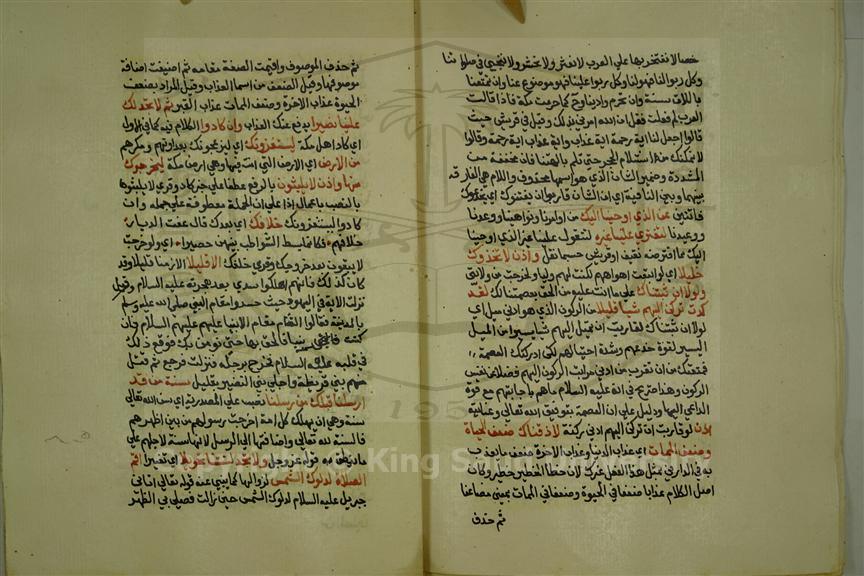 خصالا نفتخر بها على العرب لا نعشر ولا نحشر ولا نجبي في صلواتنا
وكل ربوا لنا فهو لنا وكل ربوا علينا فهو موضوع عنا وان تمتعنا
باللات سنة وان تحرم وادينا وج كما حرمت مكة فاذا قالت
العرب لم فعلت فقل ان الله امرني بذلك وقيل في قريش حيث
قالوا اجعل لنا اية رحمة اية عذاب واية عذاب اية رحمة وقالوا
لا نمكنك من استلام الحجر حتى تلم بالهتنا فان مخففة من
المشددة وضمير الشان الذي هو اسمها محذوف واللام هي الفارقة
بينها وبين النافية اي ان الشان قاربوا ان يفتنوك اي يخدعوك
فاتنين عن الذي اوحينا اليك من اوامرنا ونواهينا ووعدنا
ووعيدنا لتفتري علينا غيره لتتقول علينا غير الذي اوحينا
اليك مما اقترحته ثقيف او قريش حسبما نقل واذن لاتخذوك
خليلا اي لو اتبعت اهواهم لكنت لهم وليا ولخرجت من ولايتي
ولولا ان ثبتناك على ما انت عليه من الحق بعصمتنا لك لقد
كدت تركن اليهم شيا قليلا من الركون الذي هو ادنى ميل اي
لولا ان ثبتناك لقاربت ان تميل اليهم شيا يسيرا من الميل
اليسير لقوة خدعهم وشدة احتيالهم لكن ادركتك العصمة
فمنعتك من ان تقرب من ادنى مراتب الركون اليهم فضلا عن نفس
الركون وهذا صريح في انه عليه السلام ما هم باجابتهم مع قوة
الداعي اليها ودليل على ان العصمة بتوفيق الله تعالى وعنايته
اذن لو قاربت ان تركن اليهم ادنى ركنة لاذقناك ضعف الحياة
وضعف الممات اي عذاب الدنيا وعذاب الاخرة ضعف ما يعذب
به في الدارين بمثل هذا الفعل غيرك لان خطا الخطير خطير وكان
اصل الكلام عذابا ضعفا في الحيوة وضعفا في الممات بمعنى مضاعفا
ثم حذف
ثم حذف الموصوف واقيمت الصفة مقامه ثم اضيفت اضافة
موصوفها وقيل الضعف من اسما العذاب وقيل المراد بضعف
الحيوة عذاب الاخرة وضعف الممات عذاب القبر ثم لا تجد لك
علينا نصيرا يدفع عنك العذاب وان كادوا الكلام فيه كما في الاول
اي كاد اهل مكة ليستفزونك اي ليزعجونك بعداوتهم ومكرهم
من الارض اي الارض التي انت فيها وهي ارض مكة ليخرجوك
منها واذن لا يلبثون بالرفع عطفا على خبر كاد وقري لا يلبثوا
بالنصب باعمال اذا على ان الجملة معطوفة على جملة وان
كادوا ليستفزونك خلافك اي بعدك قال عفت الديار
خلافهم فكانما بسط الشواطب بينهن حصيرا اي ولو خرجت
لا يبقون بعد خروجك وقري خلفك الا قليلا الا زمنا قليلا وقد
كان كذلك فانهم اهلكوا ببدر بعد هجرته عليه السلام وقيل
نزلت الاية في اليهود حيث حسدوا مقام النبي صلى الله عليه وسلم
بالمدينة فقالوا الشام مقام الانبيا عليهم السلام فان
كنت نبيا فالحق بها حتى نومن بك فوقع ذلك
في قلبه عليه السلام فخرج مرحلة فنزلت فرجع ثم قتل
منهم بني قريظة واجلي بني النضير بقليل سنة من قد
ارسلنا قبلك من رسلنا نصب على المصدرية اي سن الله تعالى
سنة وهي ان يهلك كل امة اخرجت رسولهم من بين اظهرهم
فالسنة لله تعالى واضافتها الى الرسل لانها سنت لاجلهم على
ما ينطق به قوله عز وجل ولا تجد لسنتنا تحويلا اي تغييرا اقم
الصلاة لدلوك الشمس لزوالها كما ينبي عنه قوله تعالى اتاني
جبريل عليه السلام لدلوك الشمس حين زالت فصلى بي الظهر